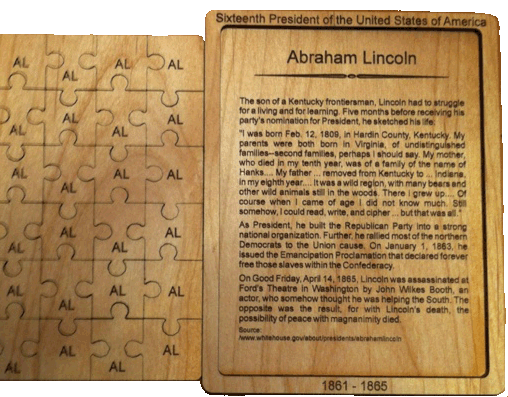 Sixteenth President of the United States of America
Abraham Lincoln
The son of a Kentucky frontiersman, Lincoln had to struggle
for a living and for learning. Five months before receiving his
party's nomination for President, he sketched his life:
"I was born Feb. 12, 1809, in Hardin County, Kentucky. My
parents were both born in Virginia, of undistinguished
families--second families, perhaps I should say. My mother,
who died in my tenth year, was of a family of the name of
Hanks.... My father ... removed from Kentucky to ... Indiana,
in my eighth year.... It was a wild region, with many bears and
other wild animals still in the woods. There I grew up.... Of
course when I came of age I did not know much. Still
somehow, I could read, write, and cipher ... but that was all."
As President, he built the Republican Party into a strong
national organization. Further, he rallied most of the northern
Democrats to the Union cause. On January 1, 1863, he
issued the Emancipation Proclamation that declared forever
free those slaves within the Confederacy.
On Good Friday, April 14, 1865, Lincoln was assassinated at
Ford's Theatre in Washington by John Wilkes Booth, an
actor, who somehow thought he was helping the South. The
opposite was the result, for with Lincoln's death, the
possibility of peace with magnanimity died.
Source:
/www.whitehouse.gov/about/presidents/abrahamlincoln
1861 - 1865
AL AL
AL AL
AL AL
AL AL
AL AL
AL AL
AL AL
AL AL
AL AL
AL AL
AL AL
AL AL